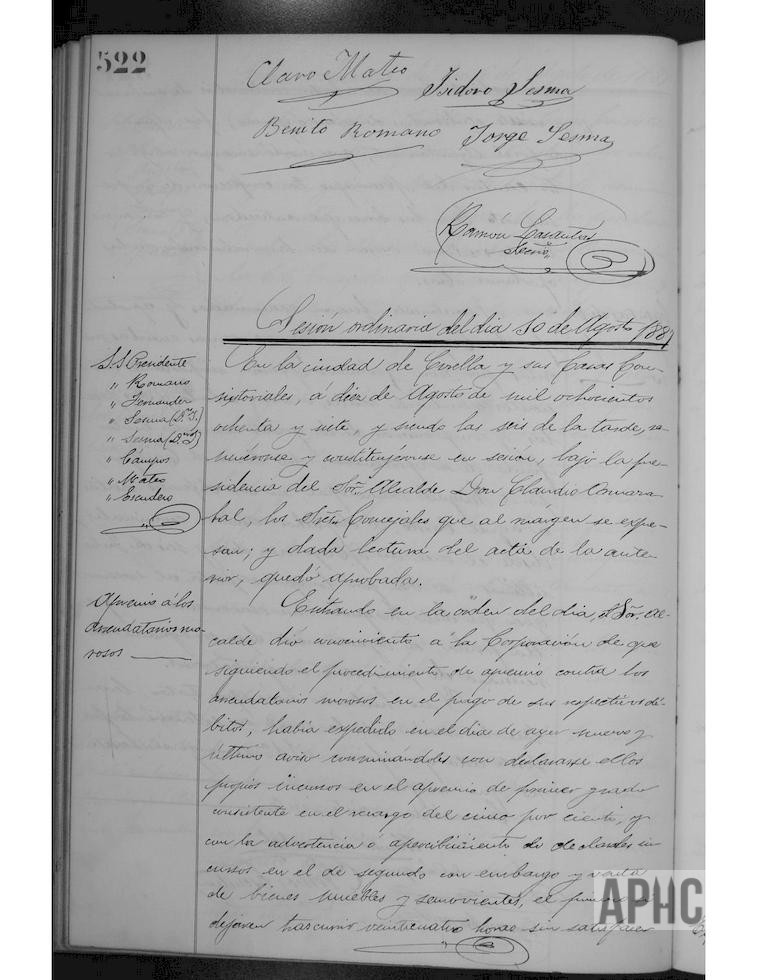 522
Claro Mateo Isidoro Sesma
Benito Romano Jorge Sesma
Ramón
Secrio
Sesión ordinaria del dia 10 de Agosto 1887
S.S. Presidente
" Romano
" Fernandez
" Sesma (D. I.)
" Sesma (D. J.)
" Cámpos
" Mateo
" Escudero
En la ciudad de Corella y sus Casas Con-
sistoriales, á diez de Agosto de mil ochocientos
ochenta y siete, y siendo las seis de la tarde, re-
uniéronse y constituyéronse en sesión, bajo la pre-
sidencia del Sor. Alcalde Don Claudio
bal, los Sres. Concejales que al márgen se expre-
san; y dada lectura del acta de la ante-
rior, quedó aprobada.
Apremio á los
arrendatarios mo-
rosos
Entrando en la órden del dia, el Sor. Al-
calde dió conocimiento á la Corporación de que
siguiendo el procedimiento de apremio contra los
arrendatarios morosos en el pago de sus respectivos dé-
bitos, había expedido en el dia de ayer nuevo y
último aviso conminándoles con declararse ellos
propios incursos en el apremio de primer grado
consistente en el recargo del cinco por ciento, y
con la advertencia ó apercibimiento de declarles in-
cursos en el de segundo con embargo y venta
de bienes muebles y semovientes, si
dejaren trascurrir veinticuatro horas sin satisfacer
APHC